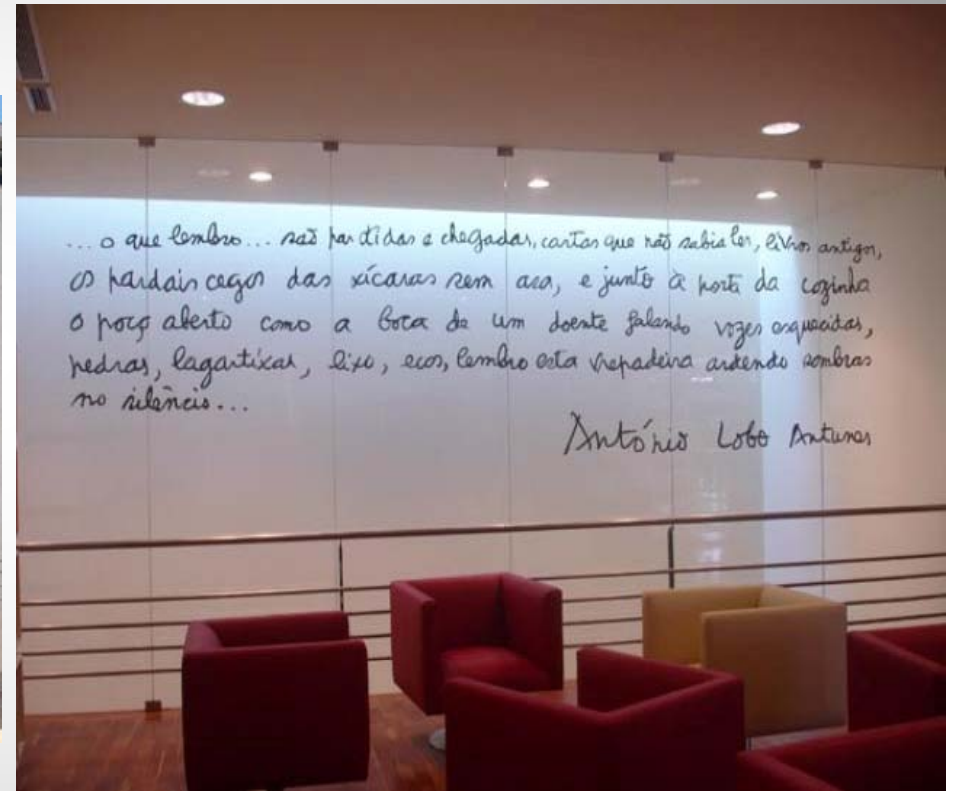 ... o que lembro... são partidas e chegadas, cartas que não sabia ler, livros antigos,
os pardais cegos das xícaras sem asa, e junto à porta da cozinha
o poço aberto como a boca de um doente falando vozes esquecidas,
pedras, lagartixas, lixo, ecos, lembro esta trepadeira ardendo sombras
no silêncio...
António Lobo Antunes